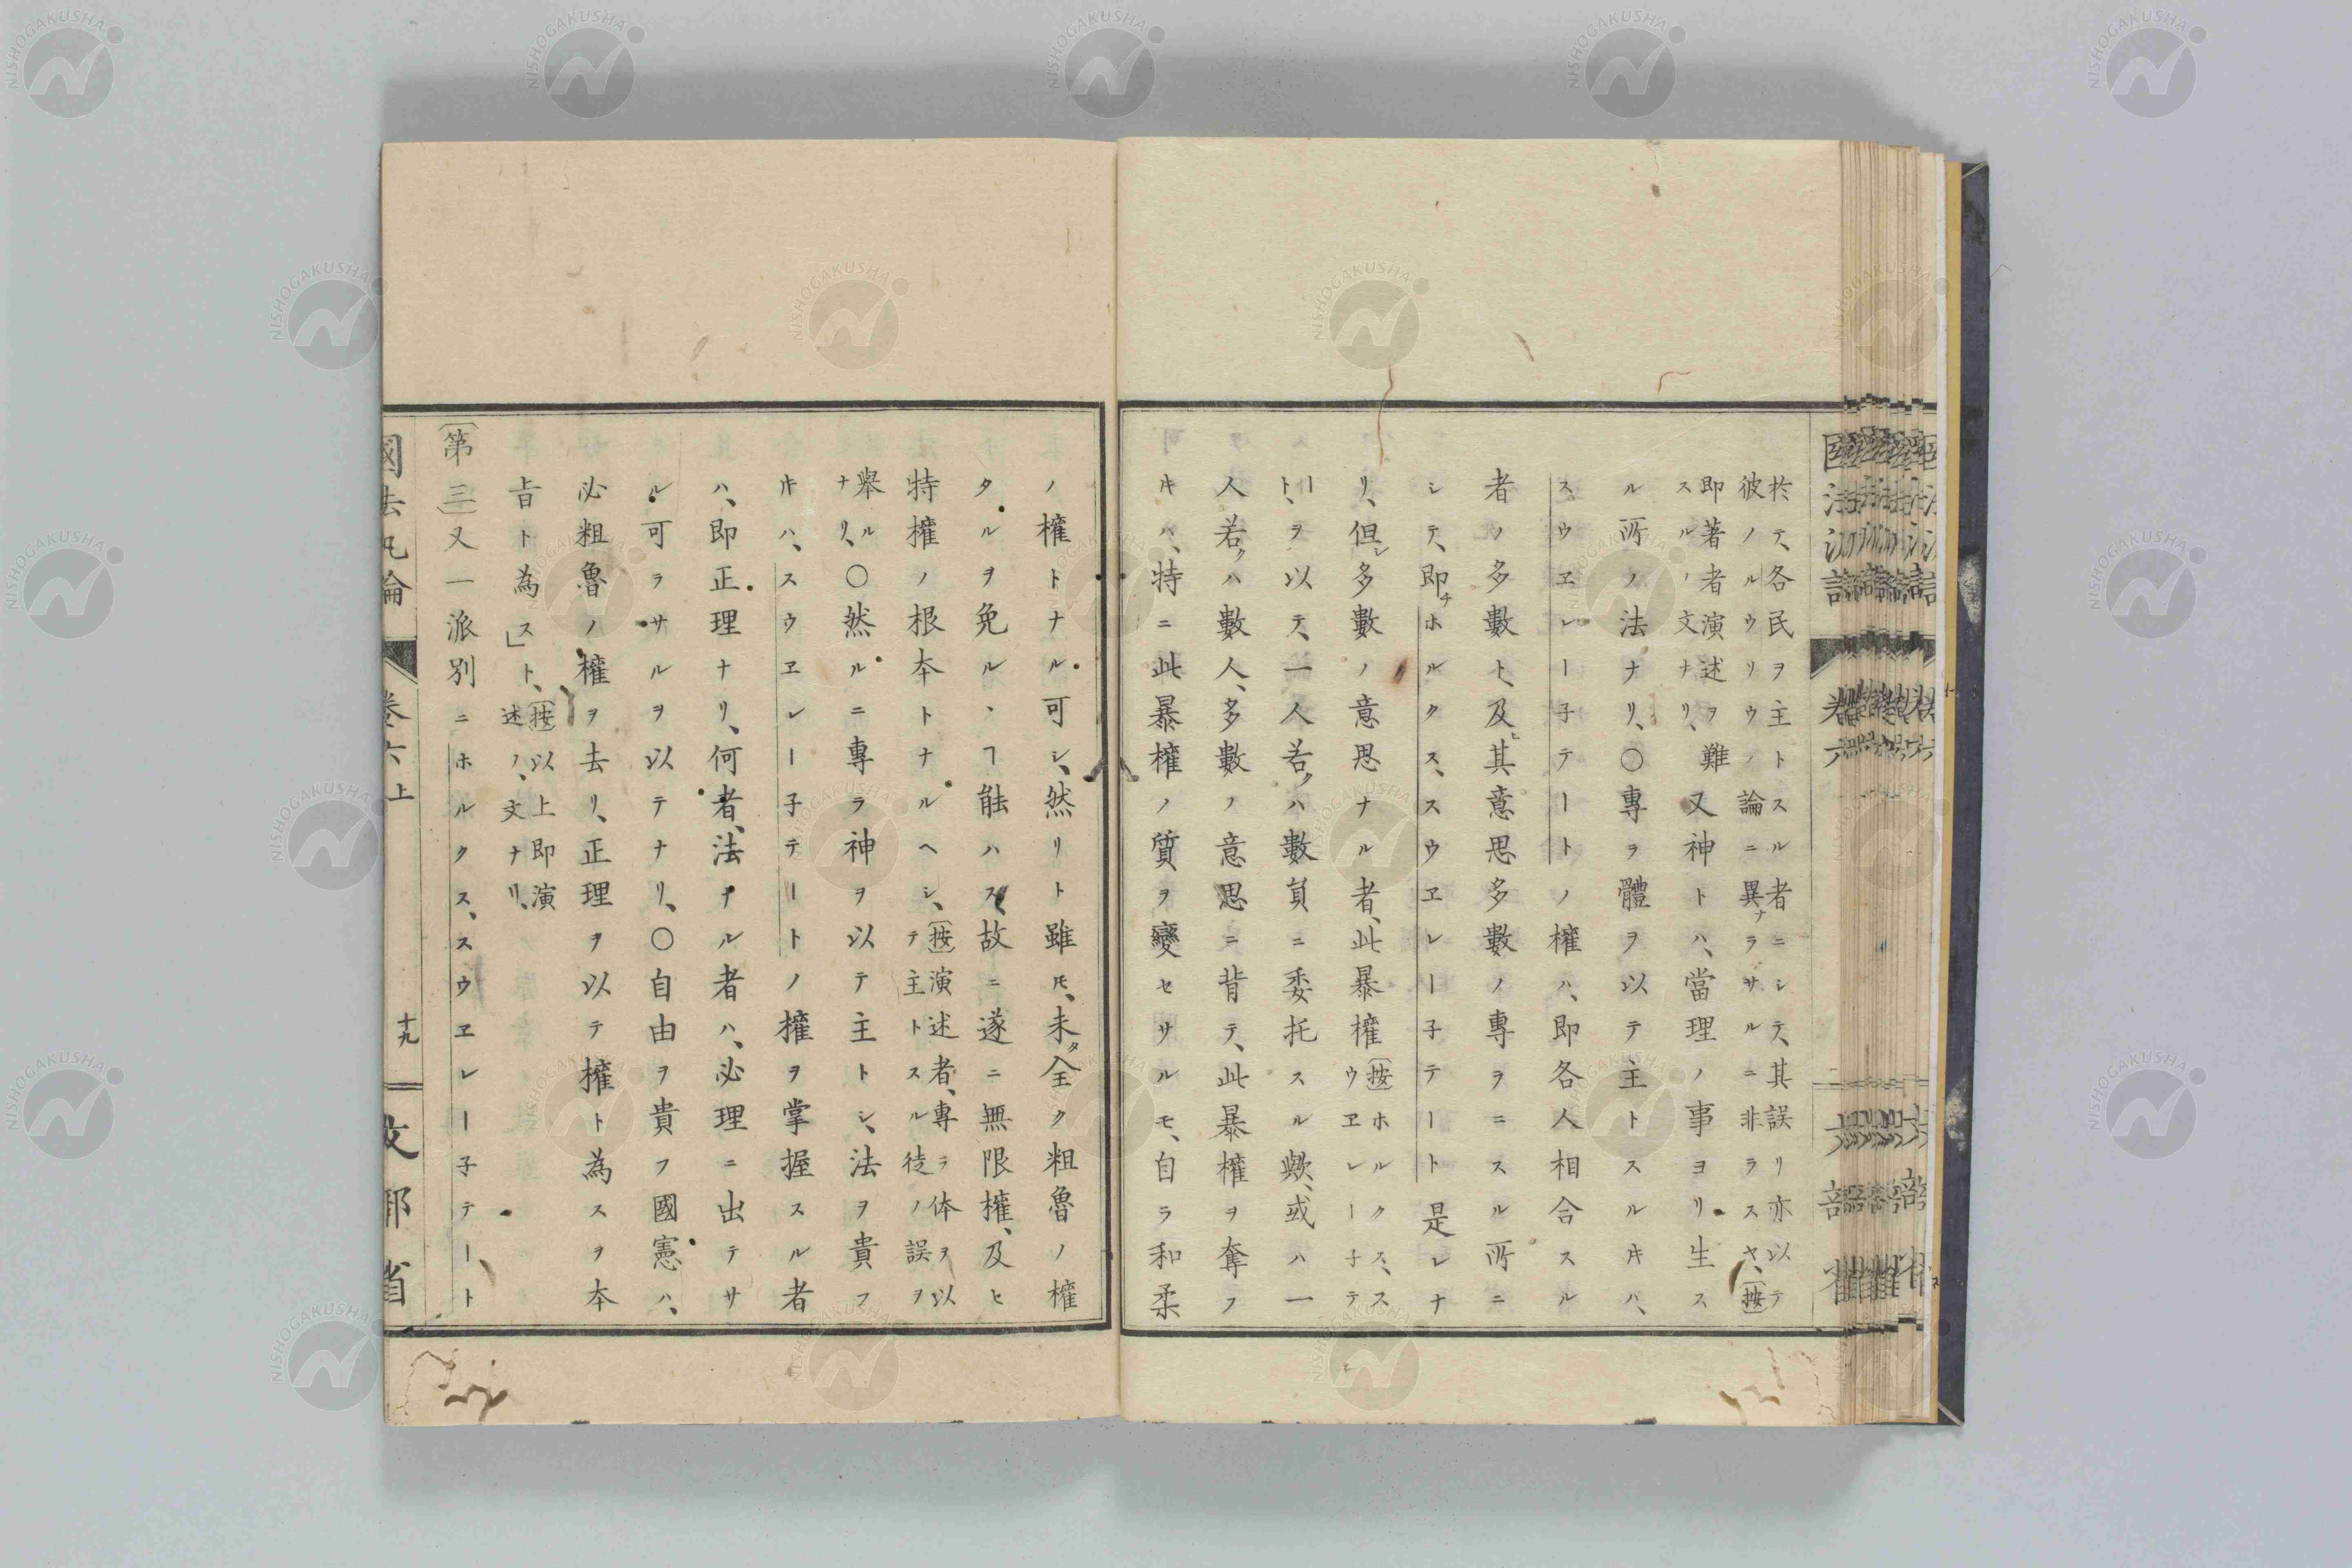 於テ、各民ヲ主トスル者ニシテ、其誤リ亦以テ
彼ノルウリウノ論ニ異ナラサルニ非ラスヤ、(按)
即著者演述ヲ難
スルノ文ナリ、
又神トハ、當理ノ事ヨリ生ス
ル所ノ法ナリ、〇專ラ體ヲ以テ主トスルキハ、
スウヱレー子テートノ權ハ、即各人相合スル
者ノ多數ト、及ヒ其意思多數ノ專ラニスル所ニ
シテ、即チホルクス、スウヱレー子テート是レナ
リ、但シ多數ノ意思ナル者、此暴權(按)ホルクス、ス
ウヱレー子テ
ート、ヲ以テ、一人若クハ數員ニ委托スル歟、或ハ一
人若クハ數人、多數ノ意思ニ背テ、此暴權ヲ奪フ
キハ、特ニ此暴權ノ質ヲ變セサルモ、自ラ和柔
ノ權トナル可シ、然リト雖モ、未タ全ク粗魯ノ權
タルヲ免ルヽヿ能ハス、故ニ遂ニ無限權、及ヒ
特權ノ根本トナルヘシ、(按)演述者、專ラ体ヲ以
テ主トスル徒ノ誤ヲ
擧ル
ナリ、
〇然ルニ專ラ神ヲ以テ主トシ、法ヲ貴フ
キハ、スウヱレー子テートノ權ヲ掌握スル者
ハ、即正理ナリ、何者、法ナル者ハ、必理ニ出テサ
ル可ラサルヲ以テナリ、〇自由ヲ貴フ國憲ハ、
必粗魯ノ權ヲ去リ、正理ヲ以テ權ト為スヲ本
旨ト為ス」ト、(按)以上即演
述ノ、文ナリ、
(第三)又一派別ニホルクス、スウヱレー子テート
國法汎論
卷六上
十九
文部省
NISHOGAKUSHA